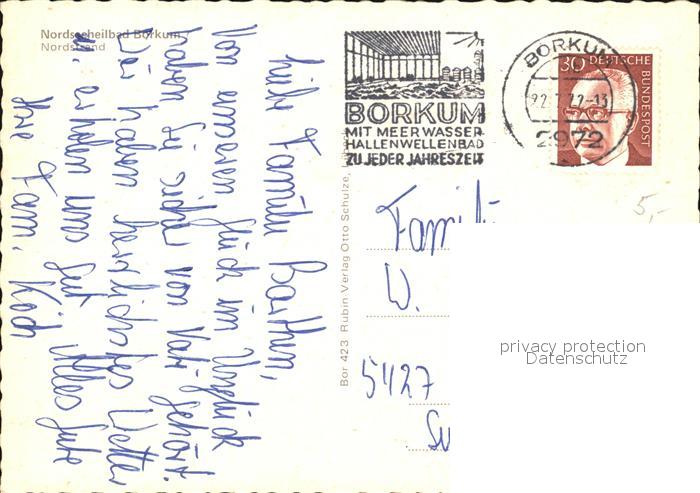 Nordseeheilbad Borkum
Nordstrand
Liebe Familie
Von unserem Glück im Unglück
haben Sie sicher von Vati gehört.
Wir haben herrliches Wetter
u. erholen uns gut. Alles Gute
Ihre Fam. Koch
Bor 423 Rubin-Verlag Otto Schulze,
BORKUM
MIT MEERWASSER
HALLENWELLENBAD
ZU JEDER JAHRESZEIT
BORKUM
2972
30 DEUTSCHE
BUNDESPOST
5,-
Famil
W.
5427
privacy protection
Datenschutz